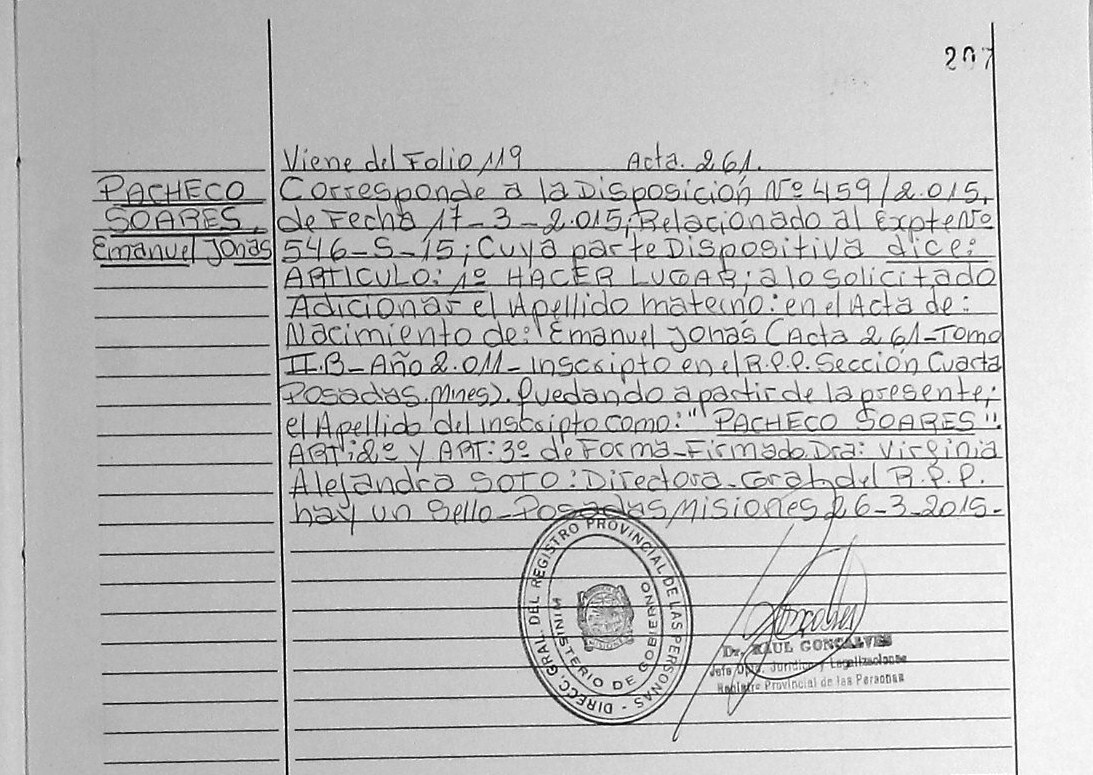 207
Viene del Folio 119 Acta. 261.
PACHECO
SOARES,
Emanuel Jonás
Corresponde a la Disposición Nº 459/2.015.
de Fecha 17-3-2.015; Relacionado al Expte Nº
546-S-15; Cuya parte Dispositiva dice:
ARTICULO: 1º HACER LUGAR; a lo solicitado
Adicionar el Apellido materno: en el Acta de:
Nacimiento de: Emanuel Jonás (Acta 261-Tomo
II.B-Año 2.011-Inscripto en el R.P.P. Sección Cuarta
Posadas. Mnes). Quedando a partir de la presente;
el Apellido del inscripto como: "PACHECO SOARES".
ART: 2º Y ART: 3º de Forma-Firmado. Dra: Virginia
Alejandra SOTO: Directora Gral del R.P.P.
hay un Sello-Posadas Misiones 26-3-2015-
DIRECC. GRAL. DEL REGISTRO PROVINCIAL DE LAS PERSONAS -
MINISTERIO DE GOBIERNO
Dr. RAUL GONCALVES
Jefe Dpto. Jurídico y Legalizaciones
Registro Provincial de las Personas